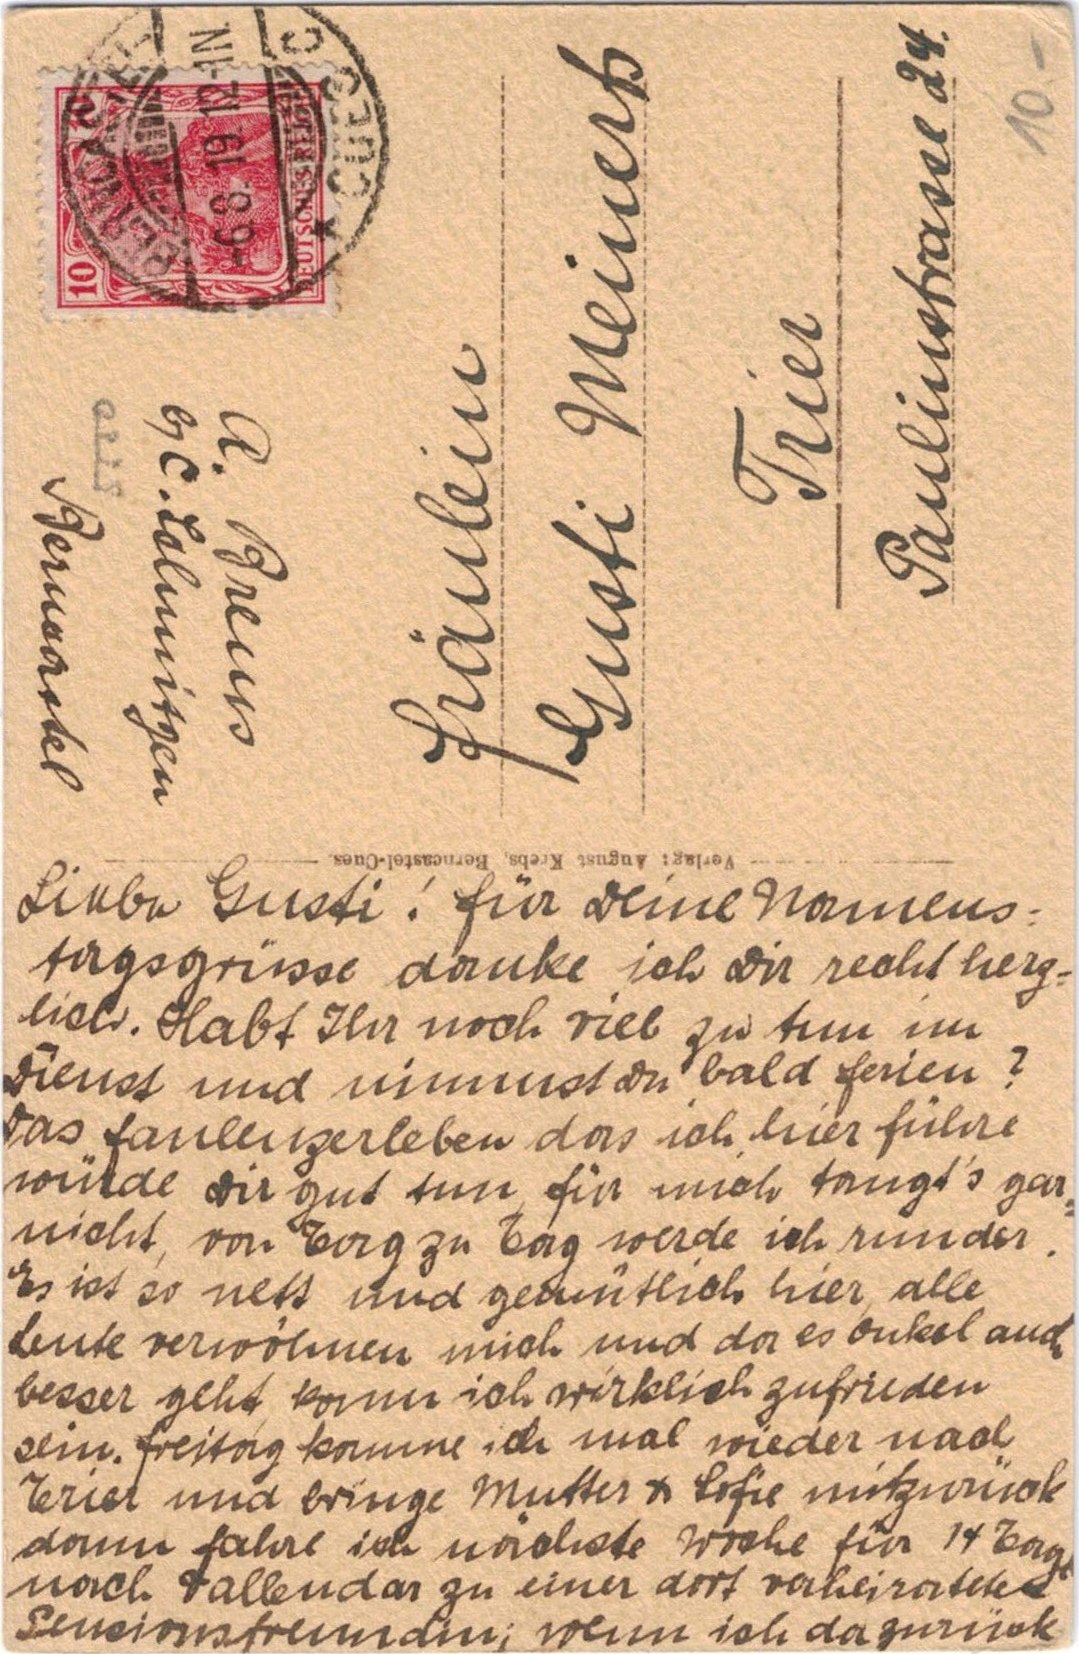 Liebe Gusti! für Deine Namens=
tagsgrüsse danke ich Dir recht herz=
lich. Habt Ihr noch viel zu tun im
Dienst und nimmst Du bald ferien?
Das faulenzerleben das ich hier führe
würde Dir gut tun, für mich taugt's gar=
nicht, von Tag zu Tag werde ich runder.
Es ist so nett und gemütlich hier, alle
Leute verwöhnen mich und da es Onkel auch
besser geht, kann ich wirklich zufrieden
sein. freitag komme ich mal wieder nach
Trier und bringe Mutter & Sofie mitzurück
dann fahre ich nächste Woche für 14 Tage
nach Vallendar zu einer dort verheirateten
Pensionsfreundin; wenn ich dazurück
Verlag: August Krebs, Berncastel-Cues.
Fräulein
Gusti Meinerts
Trier
Paulinstrasse 24.
A. Preus
b/ C.
Berncastel
10
DEUTSCHES REICH
BERNCASTEL
-6.8.19.12-1N.
CUES
C
10.-